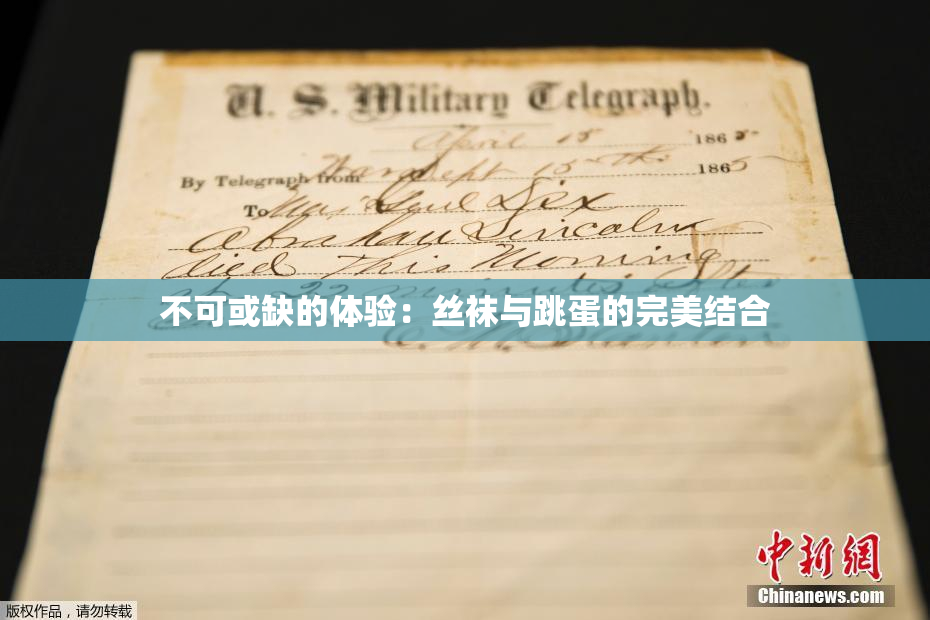 U. S. Military Telegraph.
April 15 1865
By Telegraph from War Dept 15th 1865
To Maj Genl Dix
Abraham Lincoln
died This Morning
at 22 minutes after
E. M. Stanton
不可或缺的体验：丝袜与跳蛋的完美结合
中新網
Chinanews.com
版权作品，请勿转载